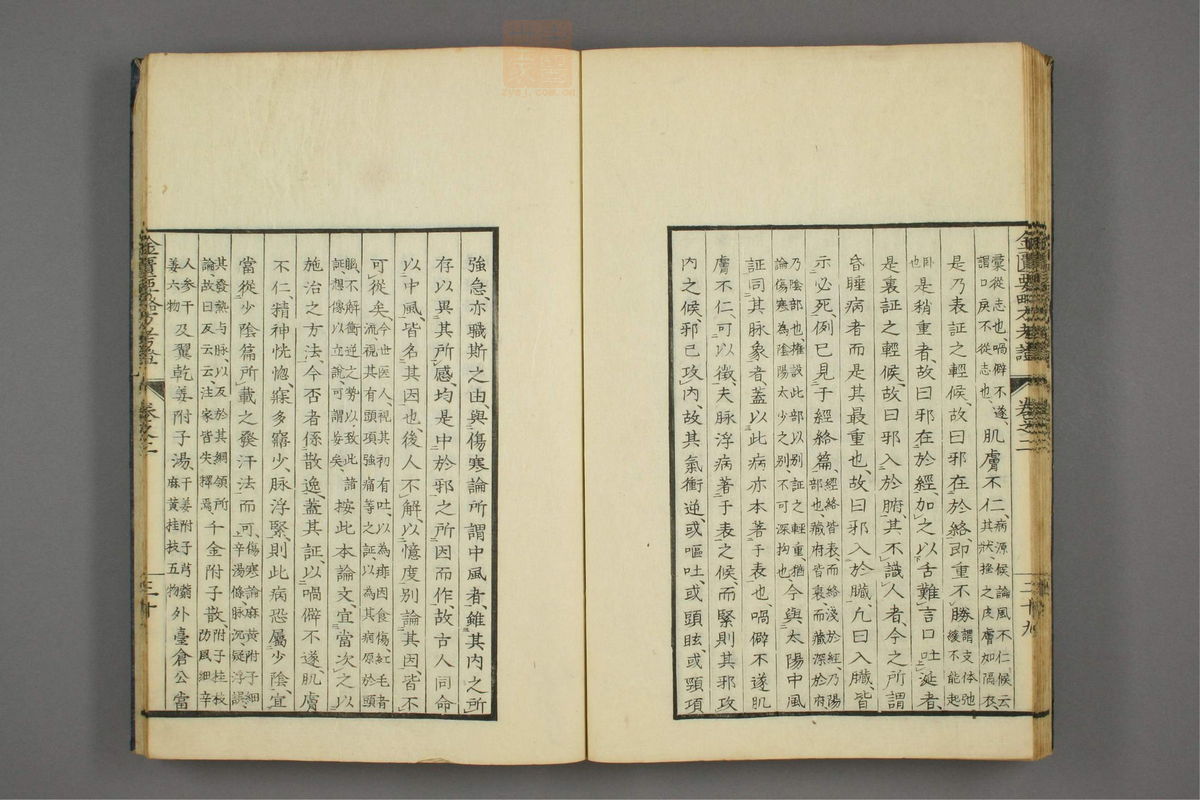 橐從志也、喎僻不遂、肌膚不仁、病源候論風不仁候云
謂口戾不從志也、其狀、搔之皮膚如隔衣、
是乃表証之輕候、故曰邪在於絡、即重不勝、謂支体弛緩不能起
臥也、是稍重者、故曰邪在於經、加之以舌難言口吐涎者、
是裏証之輕候、故曰邪入於腑、其不識人者、今之所謂
昏睡病者而是其最重也、故曰邪入於臟、凡曰入臟、皆
示必死、例已見于經絡篇、經絡皆表而絡淺於經、乃陽部也、臟府皆裏而臟深於府
乃陰部也、摧設此部以別証之輕重、猶論傷寒為陰陽太少之別、不可深拘也、今與太陽中風
証同其脉象者、蓋以此病亦本著于表也、喎僻不遂肌
膚不仁、可以徵、夫脉浮病著于表之候、而緊則其邪攻
內之候、邪已攻內、故其氣衝逆、或嘔吐、或頭眩、或頸項
強急、亦職斯之由、與傷寒論所謂中風者、雖其內之所
存以異其所感、均是中於邪之所因而作、故古人同命
以中風、皆名其因也、後人不解、以憶度別論其因、皆不
可從矣、今世医人、視其初有吐、以為痱因食傷、紅毛者流、視其有頭項強痛等之証、以為其病原於頭
腦、不解衝逆之勢以致此諸証、想像以立說、可謂妄矣、按此本論文、宜當次之以
施治之方法、今否者係散逸、蓋其証、以喎僻不遂、肌膚
不仁、精神恍惚、寐多寤少、脉浮緊、則此病恐屬少陰、宜
當從少陰篇所載之發汗法而可、傷寒論麻黃附子細辛湯條、脉沉疑浮誤、
其發熱與脉、以反於其綱領所論、故曰反云云、注家皆失釋焉、千金附子散、附子桂枝防風細辛
人參干姜六物及翼乾姜附子湯、干姜附子芎藭麻黃桂枝五物外臺倉公當
金匱要略方考證
卷之二
二十九
卷之二
三十